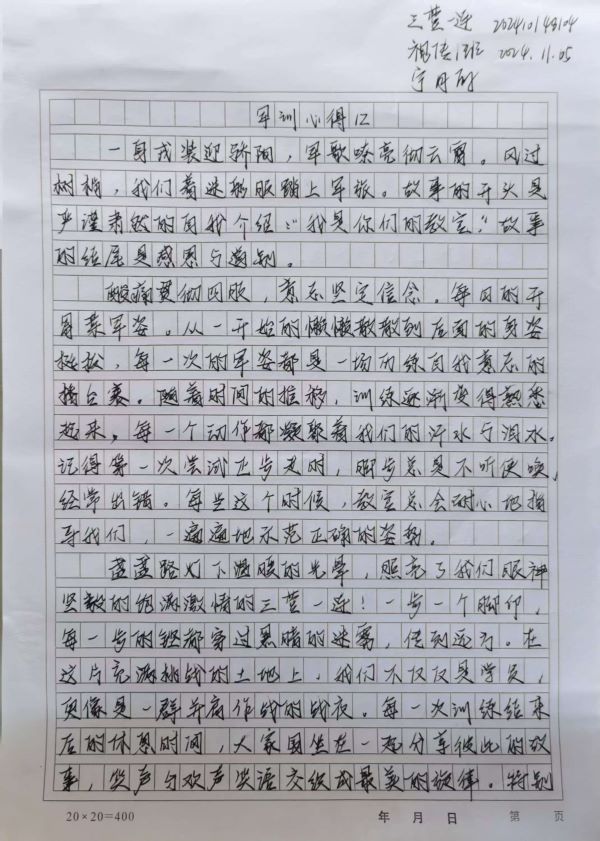 三营一连 20241014S104
视传1班 2024.11.05
宁
军训心得12
一身戎装迎骄阳，军歌嘹亮彻云霄。风过
树梢，我们着迷彩服踏上军旅。故事的开头是
严谨肃然的自我介绍：“我是你们的教官。”故事
的结尾是感恩与道别。
酸痛贯彻四肢，意志坚定信念。每日的开
胃菜军姿。从一开始的懒懒散散到后面的身姿
挺松，每一次的军姿都是一场历练自我意志的
擂台赛。随着时间的推移，训练逐渐变得熟悉
起来，每一个动作都凝聚着我们的汗水与泪水。
记得第一次尝试正步走时，脚步总是不听使唤，
经常出错。每当这个时候，教官总会耐心地指
导我们，一遍遍地示范正确的姿势。
盏盏路灯下温暖的光晕，照亮了我们眼神
坚毅的饱满激情的三营一连！一步一个脚印，
每一步的铿都穿过黑暗的迷雾，传到远方。在
这片充满挑战的土地上，我们不仅仅是学员，
更像是一群并肩作战的战友。每一次训练结束
后的休息时间，大家围坐在一起分享彼此的故
事，笑声与欢声笑语交织成最美的旋律。特别
20×20=400
年 月 日 第 页